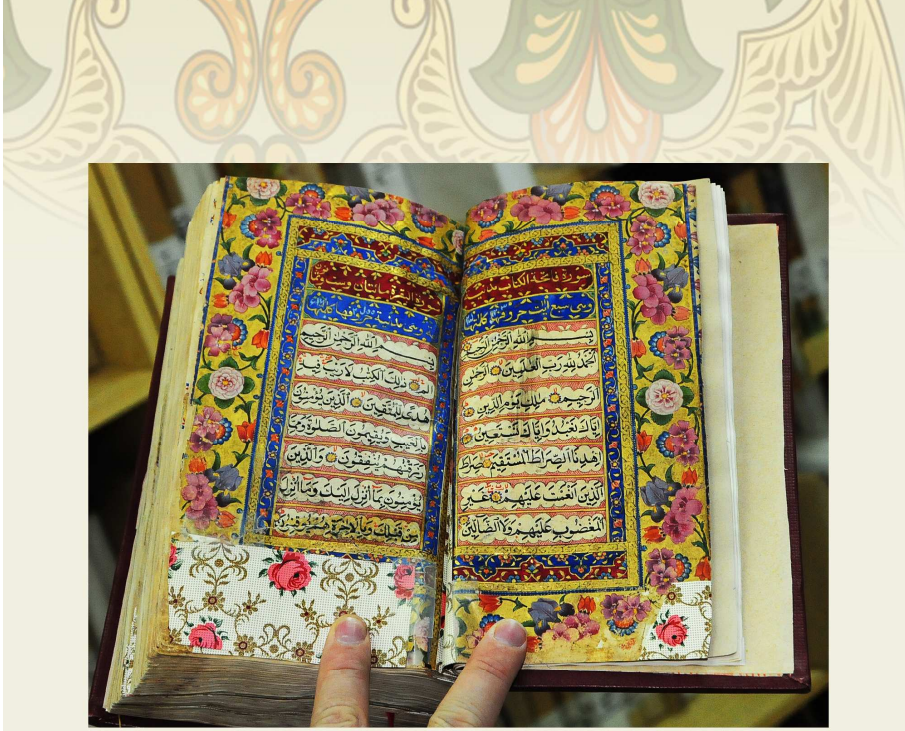 سورة فاتحة الكتاب
وهي سبع
بسم الله الرحمن الرحيم
الحمد لله رب العلمين الرحمن
الرحيم ملك يوم الدين
اياك نعبد واياك نستعين
اهدنا الصراط المستقيم صراط
الذين انعمت عليهم غير
المغضوب عليهم ولا الضالين
سورة البقرة مائتان وست
بسم الله الرحمن الرحيم
الم ذلك الكتب لا ريب فيه
هدى للمتقين الذين يؤمنون
بالغيب ويقيمون الصلوة ومما
رزقنهم ينفقون والذين
يؤمنون بما انزل اليك وما انزل
من قبلك وبالاخرة هم يوقنون